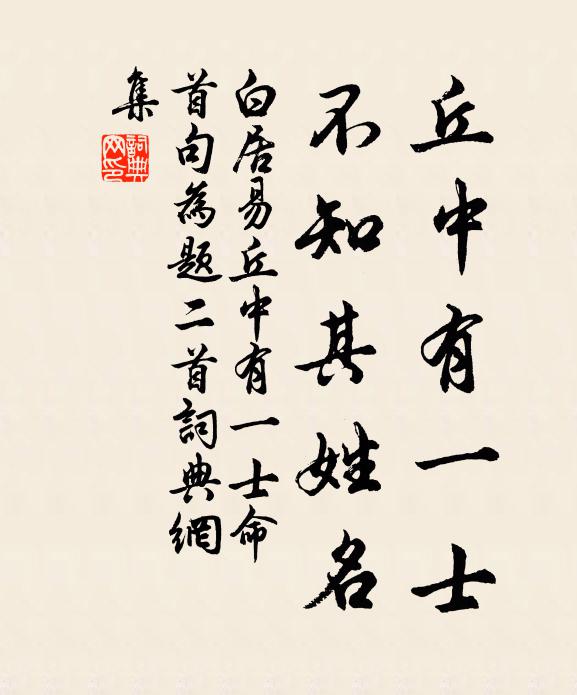 丘中有一士
不知其姓名
白居易丘中有一士命
首句為題二首詞典網
集
詞典
网印